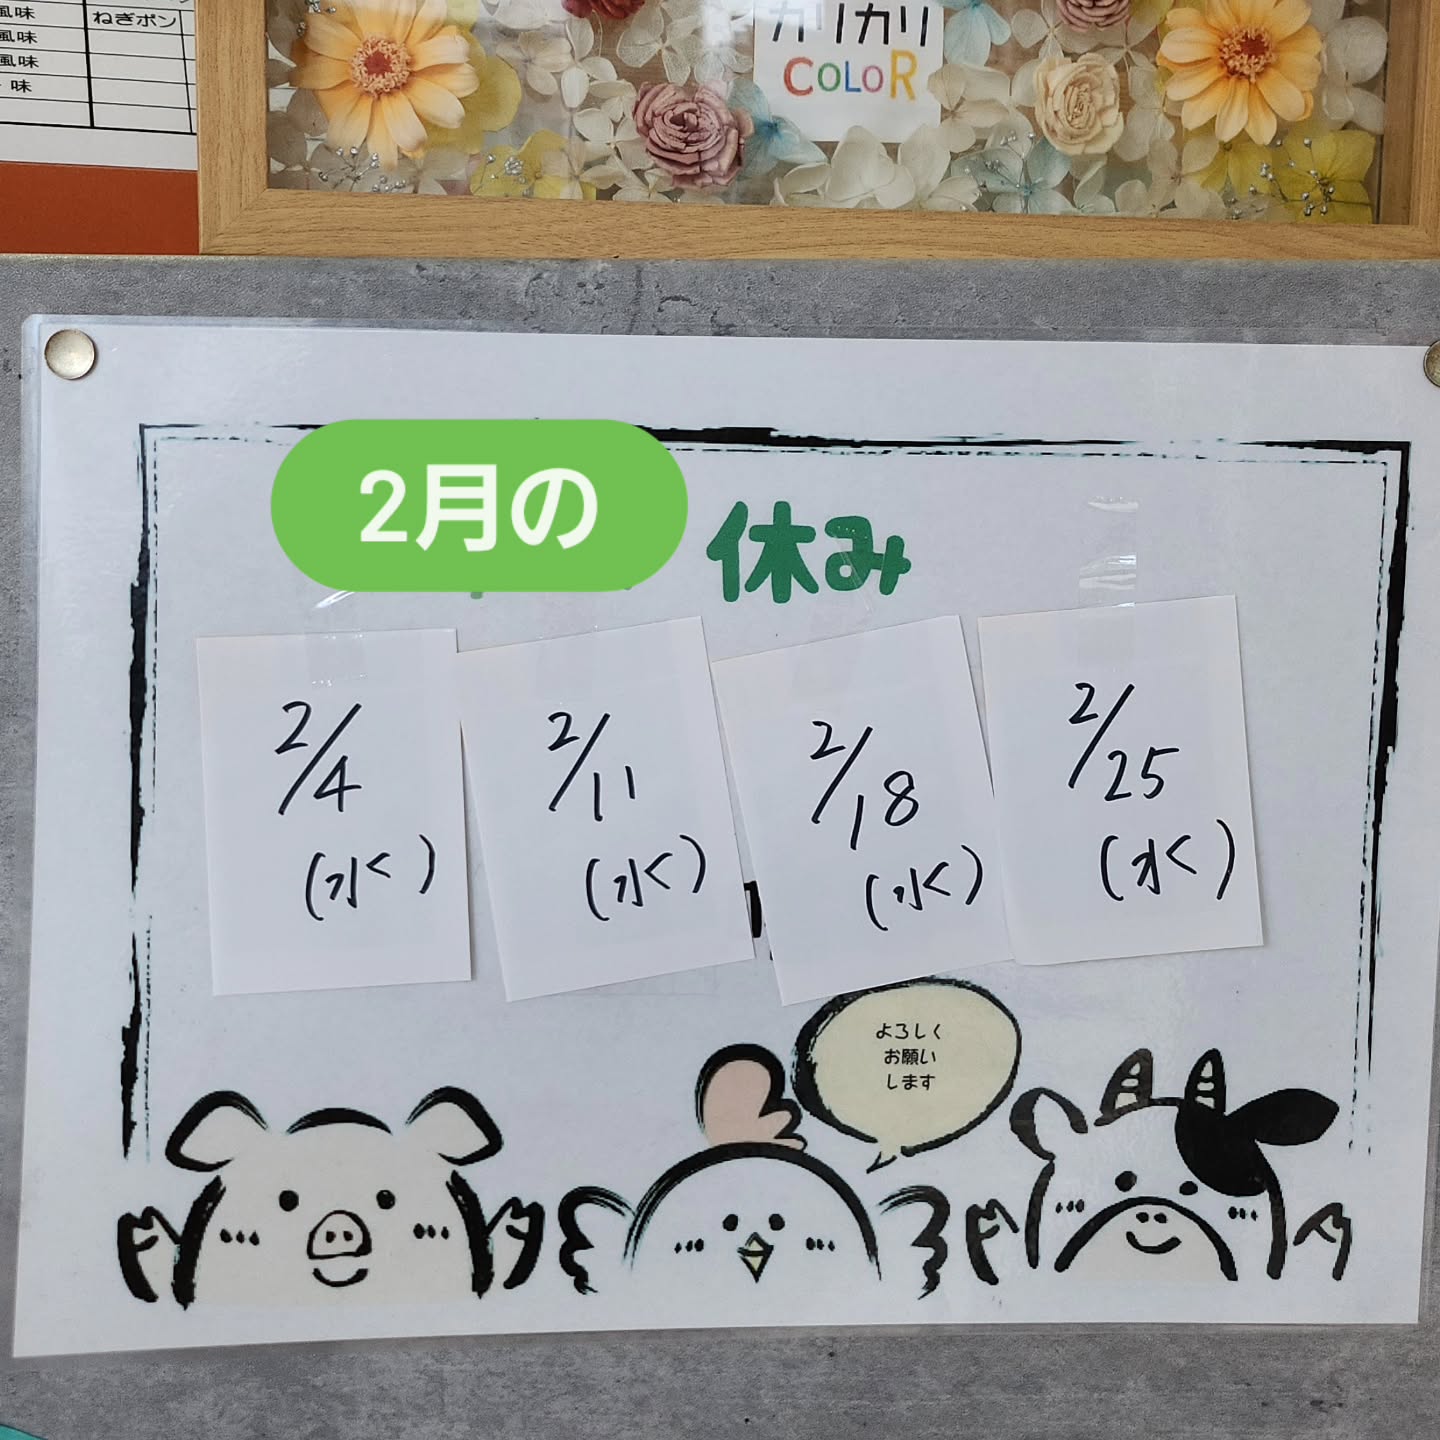 風味
ねぎポン
風味
風味
味
カリカリ
COLOR
2月の
休み
2/4
(水)
2/11
(水)
2/18
(水)
2/25
(水)
よろしく
お願い
します